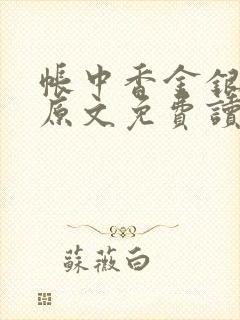 帳中香金銀
原文免費讀
蘇薇白